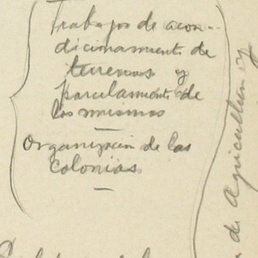 Trabajos de acon-
dicionamiento de
terrenos y
parcelamiento de
los mismos
Organización de las
colonias
de Agricultura y